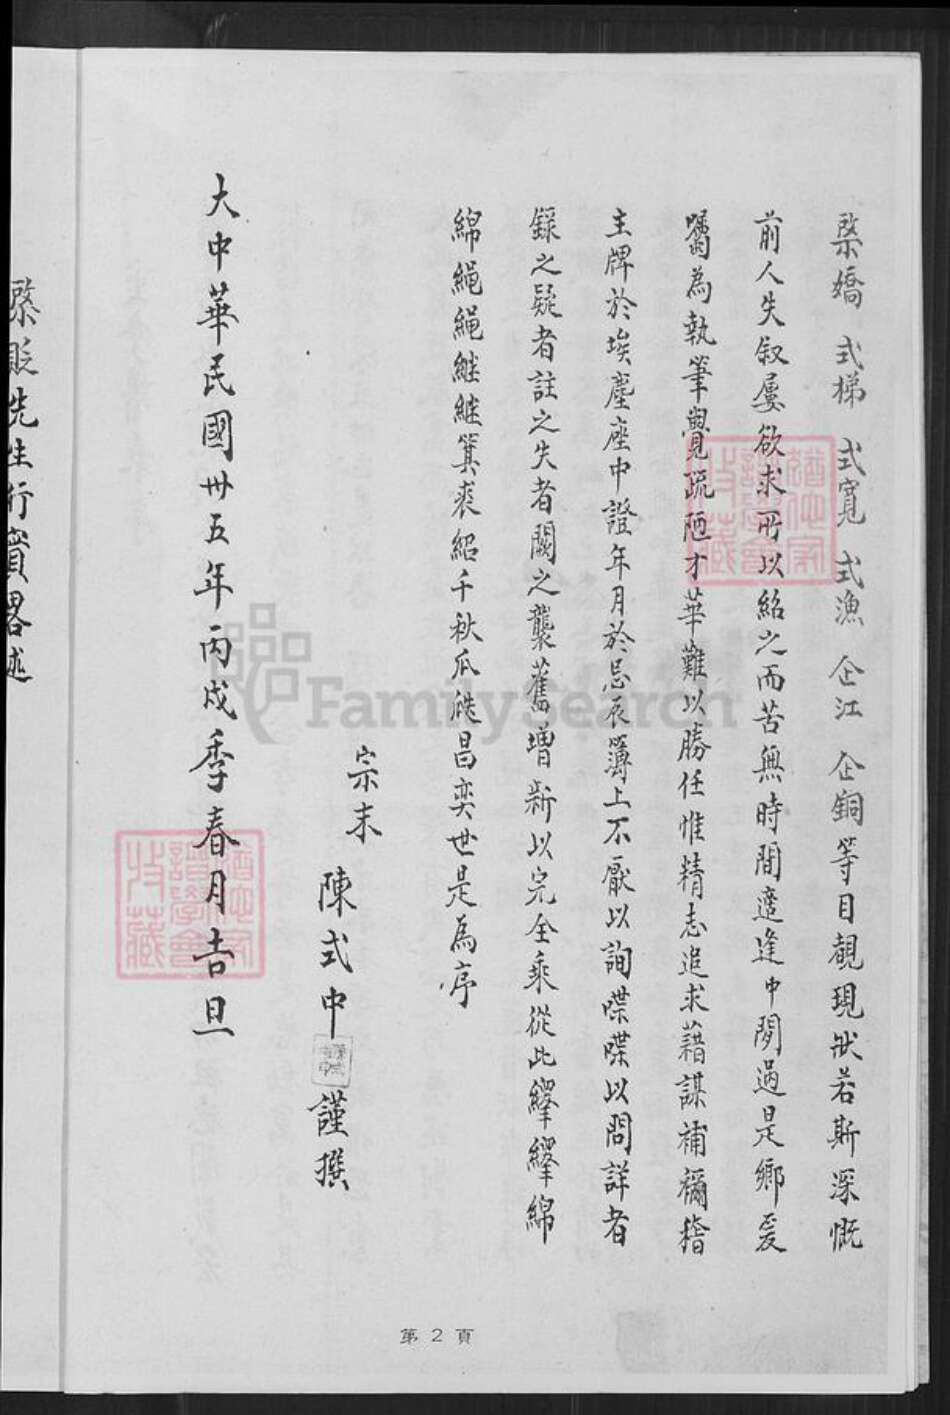 棨嬌 式梯 式寬 式漁 企江 企銅等目覩現狀若斯深慨
前人失叙屢欲求所以紹之而苦無時間適逢中閒過是鄉爰
囑為執筆覺疏陋才華難以勝任惟精志追求藉謀補禰稽
主牌於埃塵座中證年月於忌辰簿上不厭以詢喋喋以問詳者
錄之疑者註之失者闕之襲舊增新以完全乘從此繹繹綿
綿繩繩継継箕裘紹千秋瓜瓞昌奕世是為序
宗末 陳式中 謹撰
大中華民國卅五年丙戌季春月吉旦
先生行實畧述
第2頁
FamilySearch